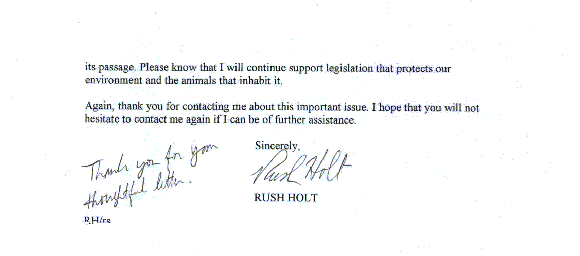 its passage. Please know that I will continue support legislation that protects our
environment and the animals that inhabit it.
Again, thank you for contacting me about this important issue. I hope that you will not
hesitate to contact me again if I can be of further assistance.
Sincerely,
Thank you for your
thoughtful letter.
Rush Holt
RUSH HOLT
RH/re